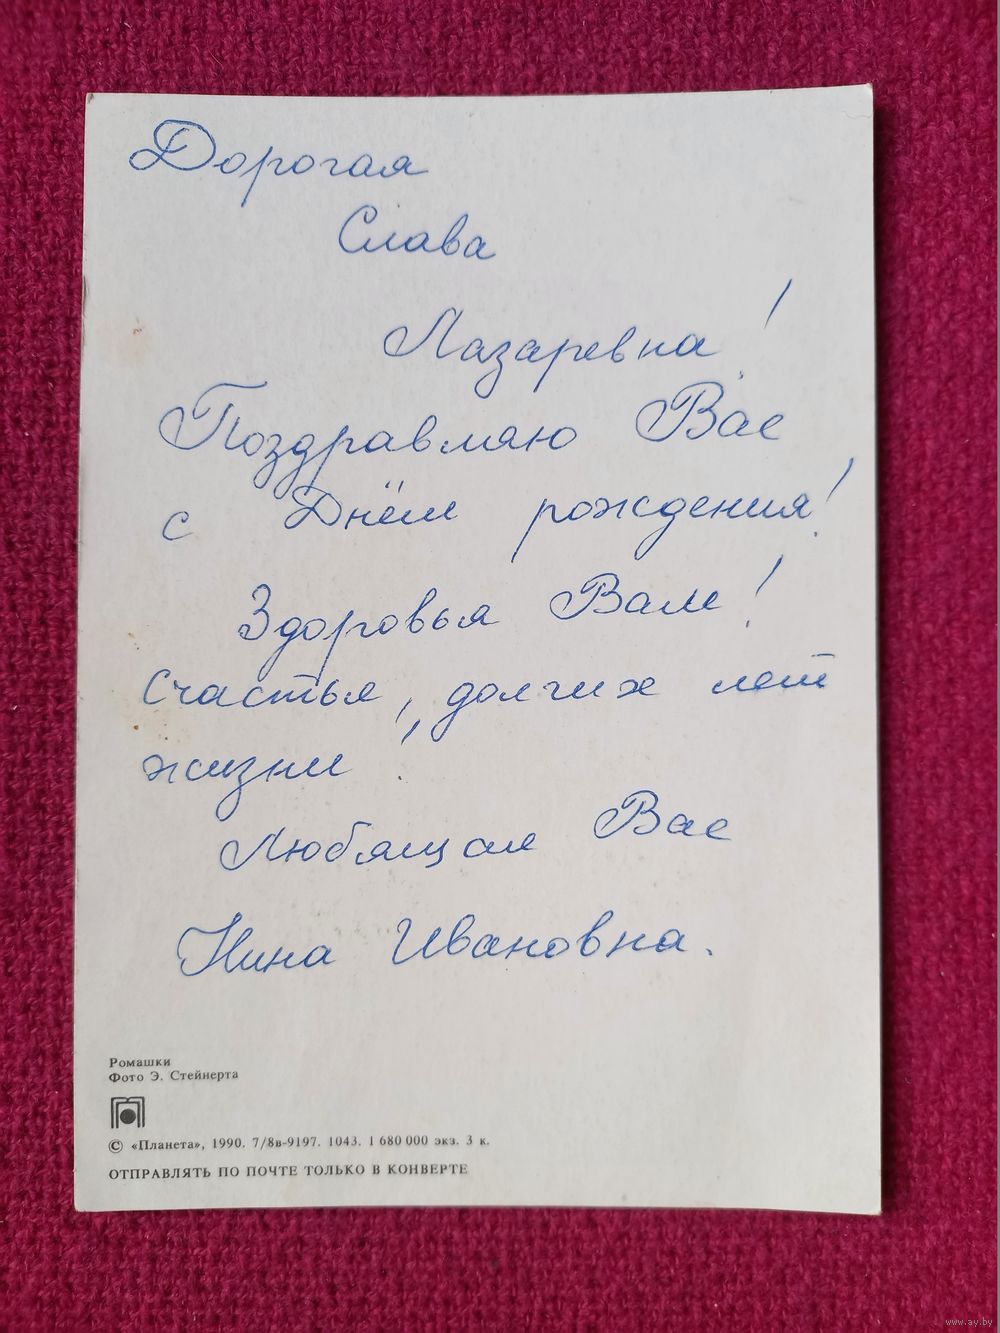 Дорогая
Слава
Лазаревна!
Поздравляю Вас
с Днём рождения!
Здоровья Вам!
Счастья, долгих лет
жизни!
Любящая Вас
Нина Ивановна.
Ромашки
Фото Э. Стейнерта
© «Планета», 1990. 7/8в-9197. 1043. 1 680 000 экз. 3 к.
ОТПРАВЛЯТЬ ПО ПОЧТЕ ТОЛЬКО В КОНВЕРТЕ
www.ay.by